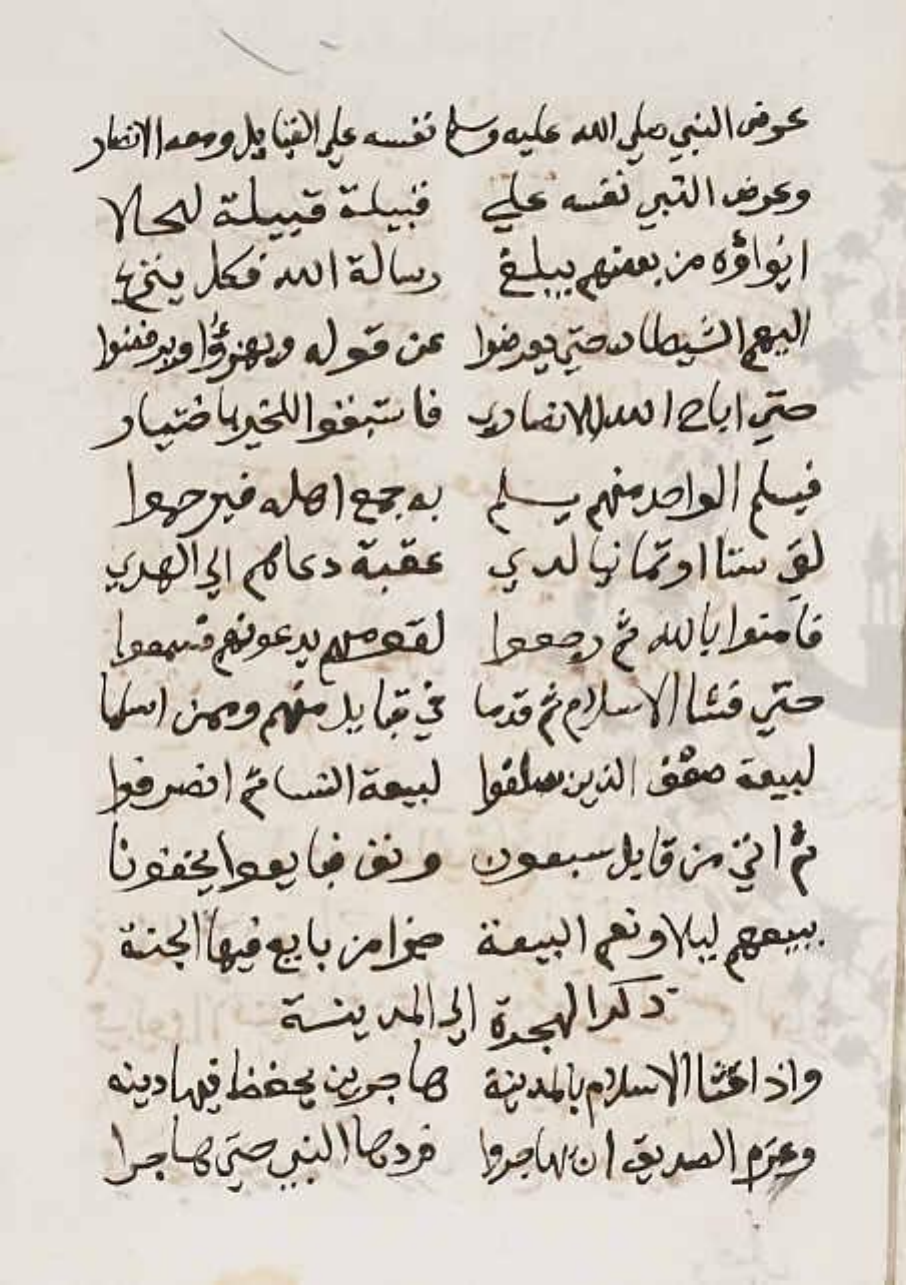 عرض النبي صلي الله عليه وسلم نفسه علي القبايل ومعه الانصار
وعرض النبي نفسه علي قبيلة قبيلة لحالا
ايواؤه من بعضهم يبلغ رسالة الله فكل ينزغ
اليهم الشيطان حتي يعرضوا عن قوله ويهزؤا ويرفضوا
حتي اباح الله للانصاري فاستبقوا للخير باختيار
فيسلم الواحد منهم يسلم به جمع اهله فيرحموا
لقي ستا او ثمانيا لدي عقبة دعاهم الي الهدي
فآمنوا بالله ثم رجعوا لقومهم يدعونهم فسمعوا
حتي فشا الاسلام ثم قدما في قبايل منهم وممن اسلما
لبيعة الذين لبيعة النسا ثم انصرفوا
ثم اتي من قابل سبعون ونف فبايعوا يخفونا
بيعهم ليلا ونعم البيعة من بايع فيها الجنة
ذكر الهجرة الي المدينة
واذ افشا الاسلام بالمدينة هاجر من يحفظ فيها دينه
وعزم الصديق ان يهاجروا فردها النبي حتي هاجرا